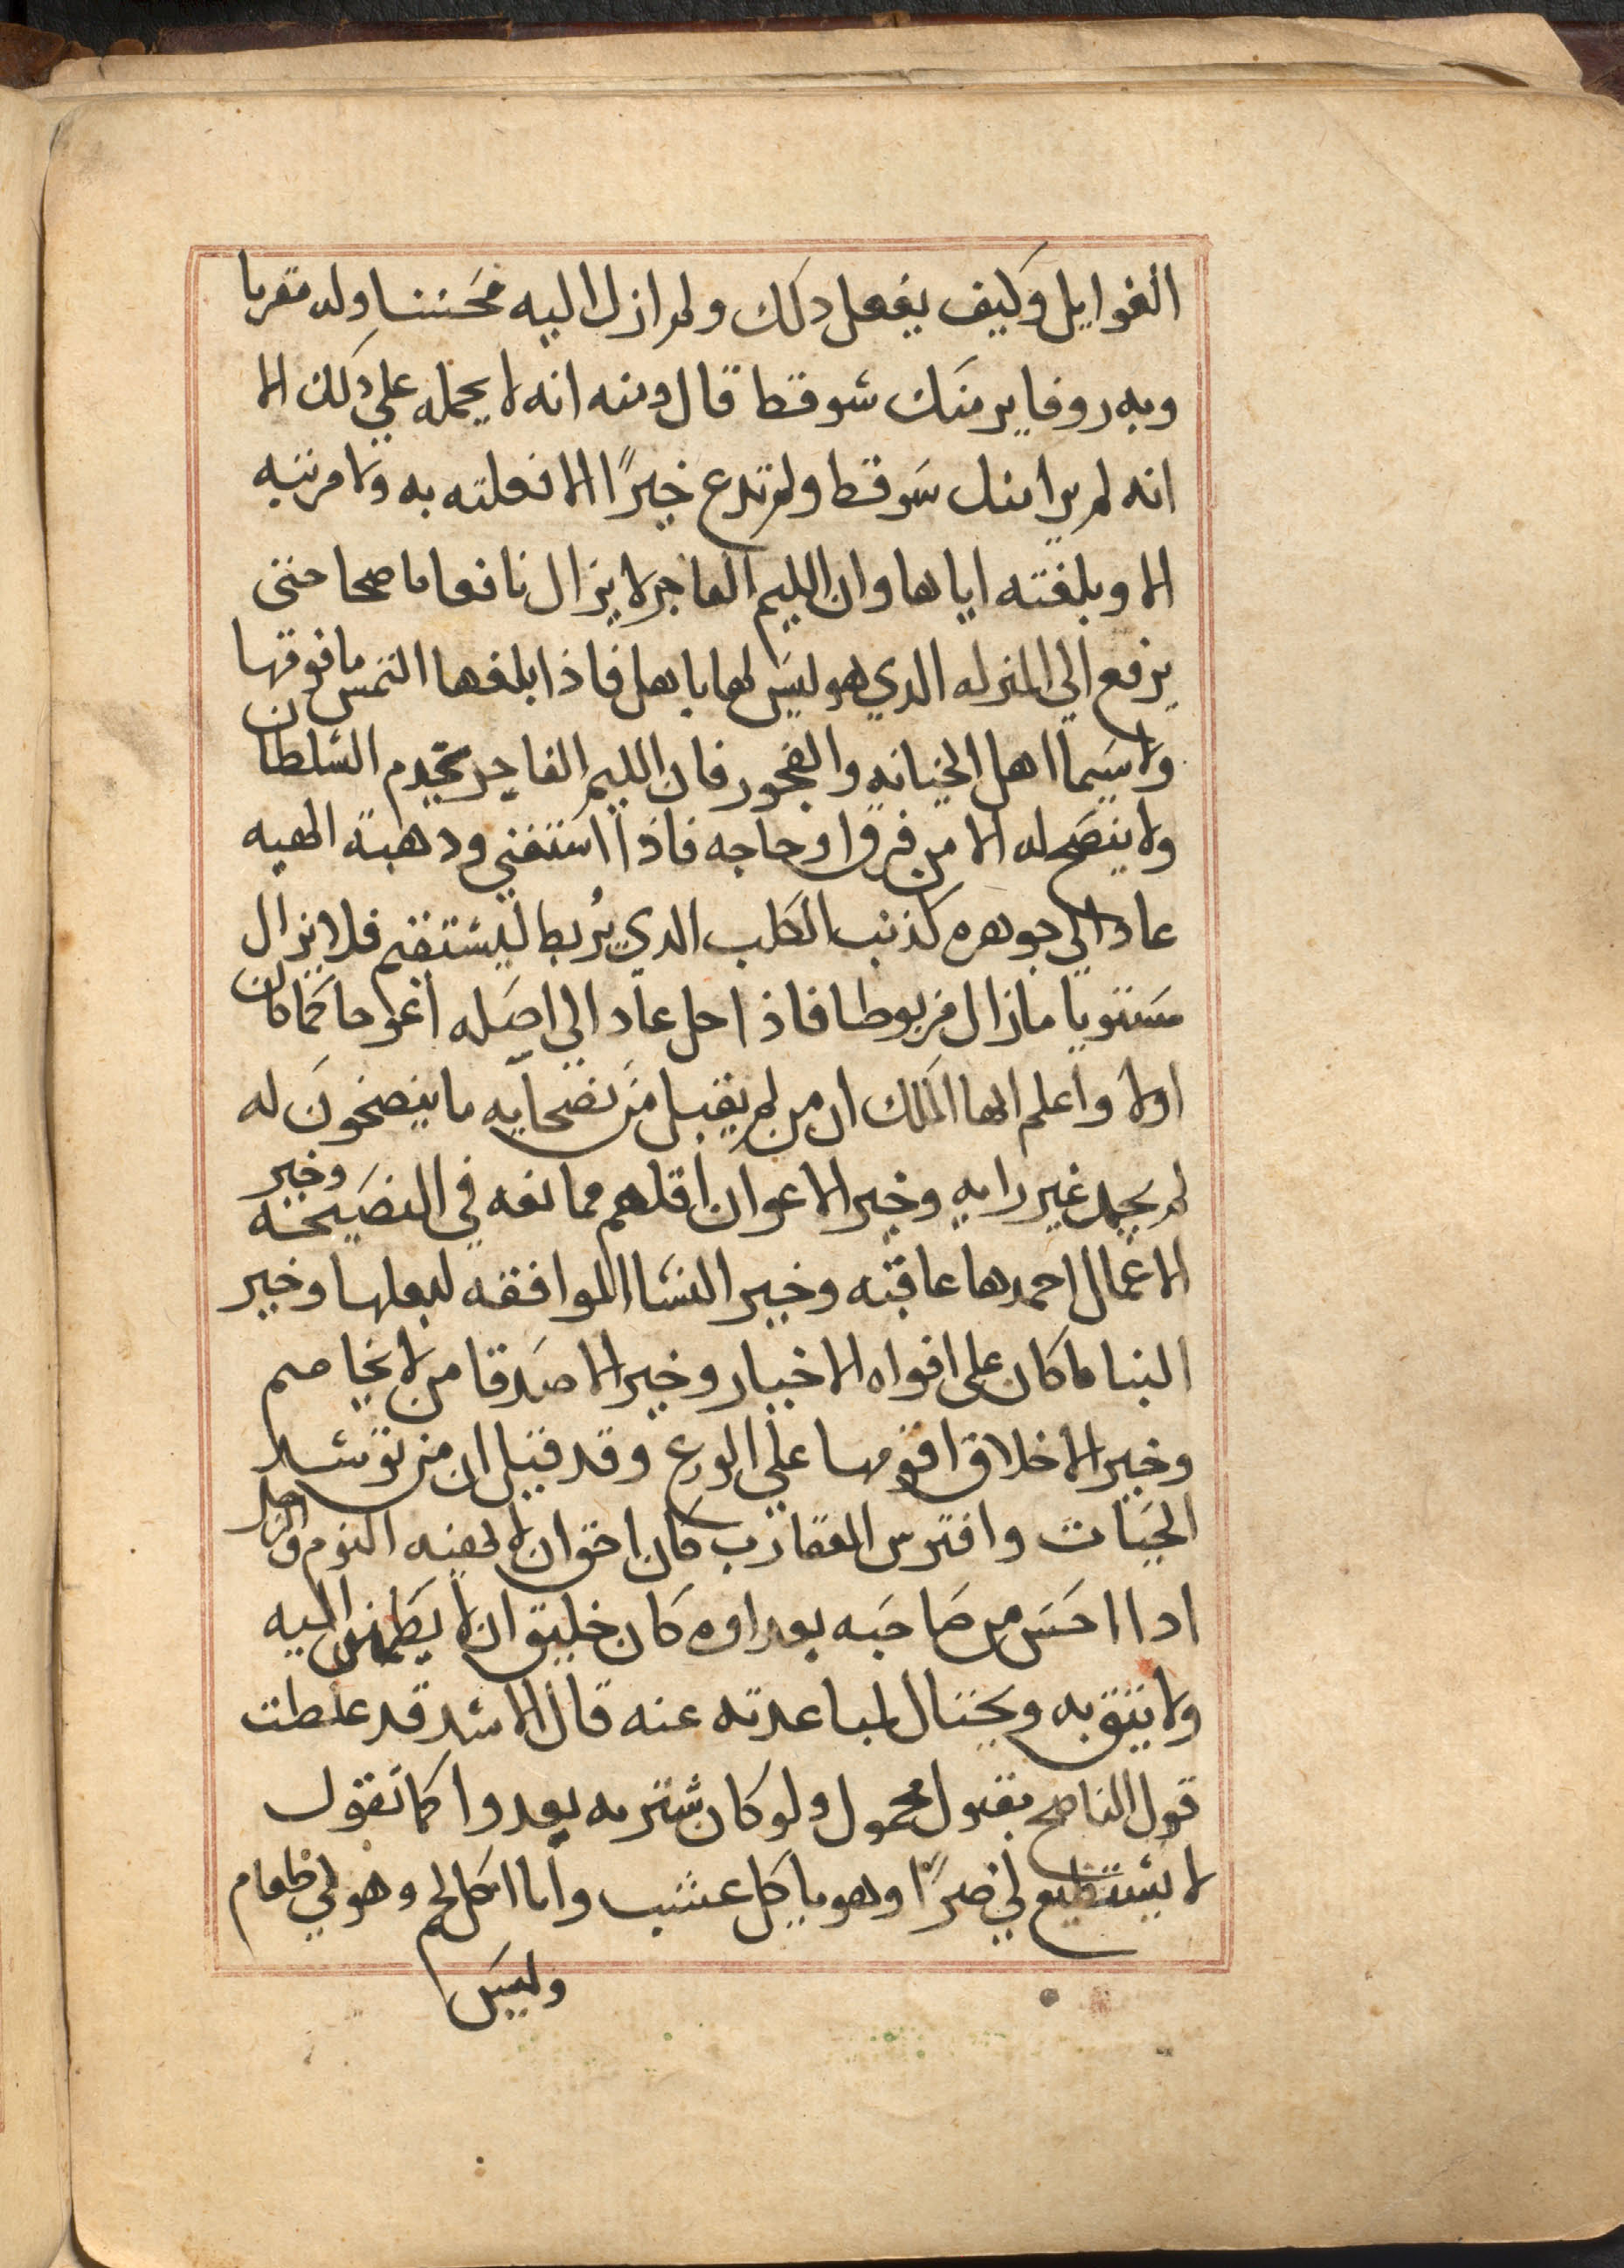 الغوايل وكيف يفعل دلك ولم ازل اليه محسننا وله مقربا
وبه روفا ير منك شو قط قال دمنه انه لا يحمله علي دلك الا
انه لم يرا منك سو قط ولم تدع خيرًا الا فعلته به ولا مرتبه
الا وبلغته اياها وان الليم الفاجر لا يزال نافعا ناصحا حتي
يرفع الي المنزله الدي هو ليس لها باهل فاذا بلغها التمس ما فوقها
ولا سيما اهل الخيانه والفجور فان الليم الفاجر يخدم السلطان
ولا ينصح له الا من فرق او حاجه فاذا استغني ودهبة الهيبه
عاد الي جوهره كذنب الكلب الدي يُربط ليستقيم فلا يزال
مستويا ما زال مربوطا فاذا حل عاد الي اصله اعوجا كما كان
اولا واعلم ايها الملك ان من لم يقبل من نصحايه ما ينصحون له
لم يحمد غير رايه وخير الاعوان اقلهم ممانعه في النصيحه وخير
الاعمال احمدها عاقبته وخير النسا الموافقه لبعلها وخير
الثنا ما كان على افواه الاخيار وخير الاصدقا من لا يخاصم
وخير الاخلاق اقومها علي الورع وقد قيل ان من توسد
الحيات وافترس العقارب كان احق ان لا يهنيه النوم والرجل
ادا احس من صاحبه بعداوه كان خليق ان لا يطمئن اليه
ولا يثق به ويحتال لمباعدته عنه قال الاسد قد غلطت
قول الناصح مقبول محمول ولو كان شتربه بعدوا كما تقول
لا يستطيع لي ضرًا وهو ياكل عشب وانا اكل لحم وهو لي طعام
وليس